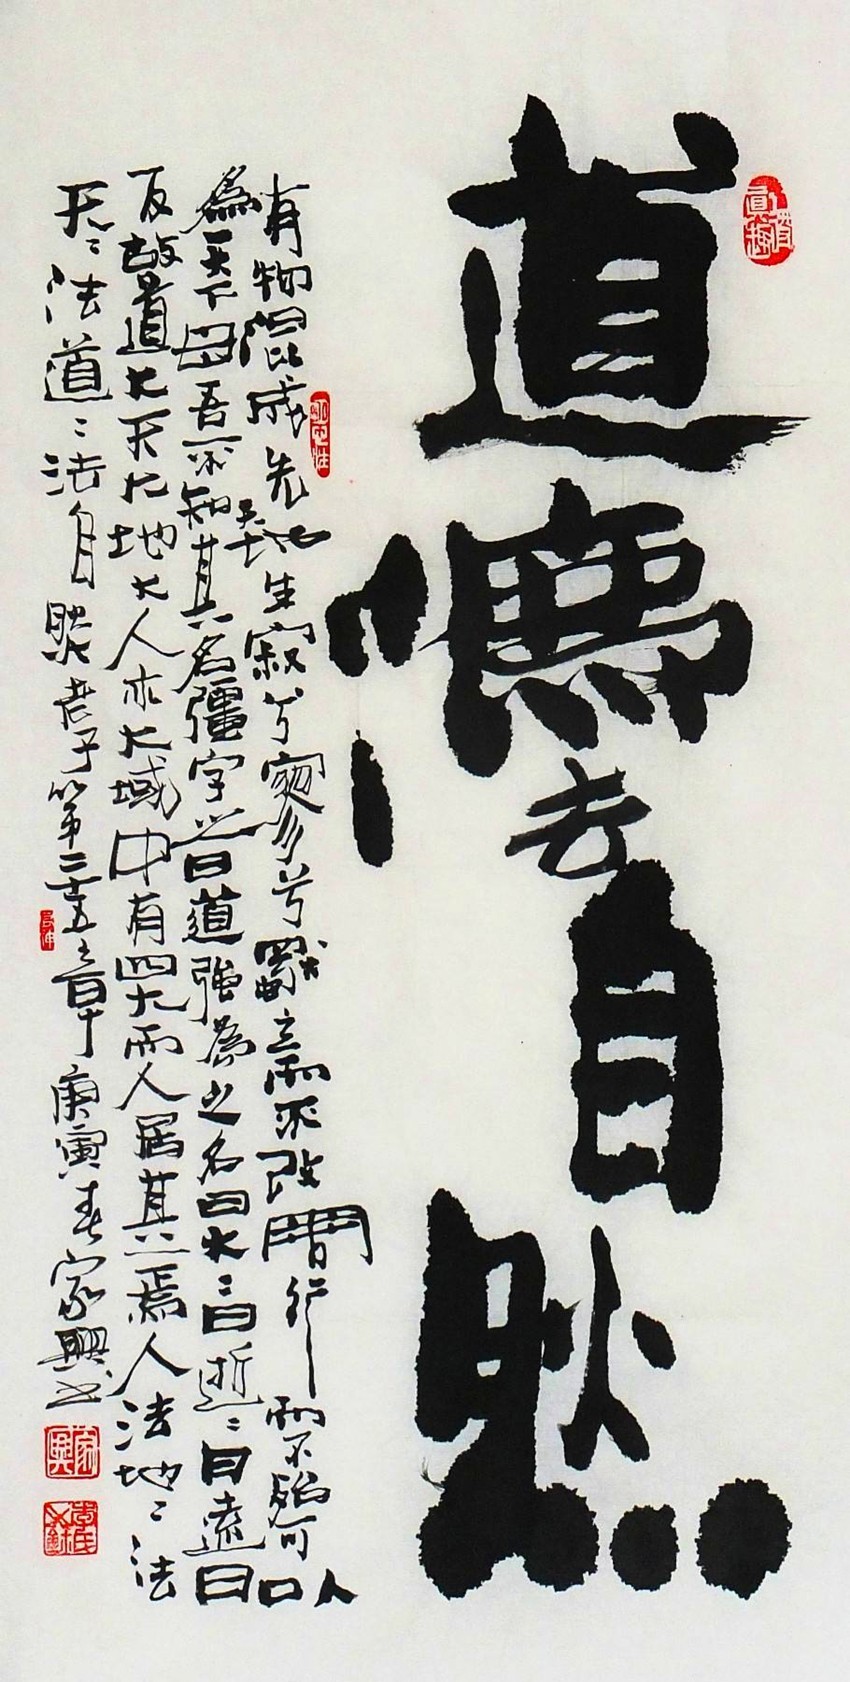 道灋自然
有物混成先天地生寂兮寥兮獨立而不改周行而不殆可以
為天下母吾不知其名彊字之曰道強為之名曰大〻曰逝〻曰遠曰
反故道大天大地大人亦大域中有四大而人居其一焉人法地〻法
天〻法道〻法自然老子第二十五章庚寅春家興書
家興